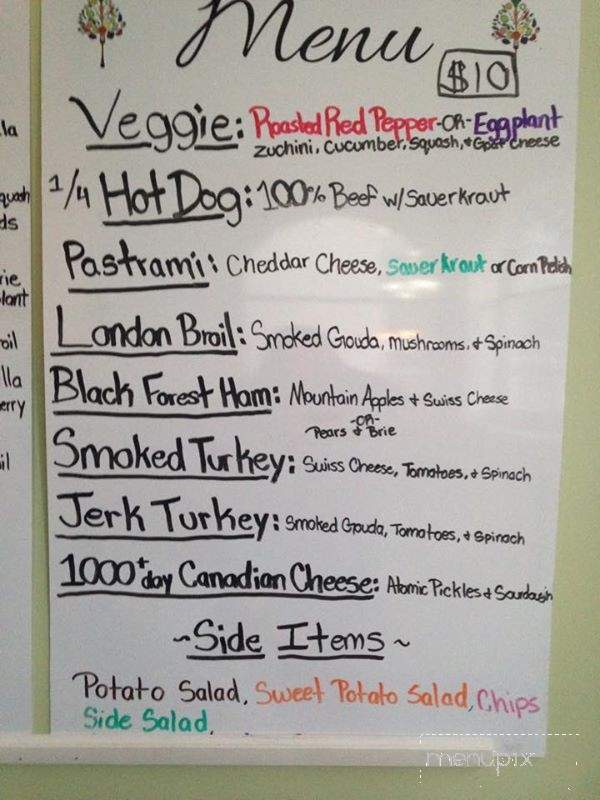 Menu
$10
Veggie: Roasted Red Pepper -OR- Eggplant
Zuchini, Cucumber, Squash, + Goat Cheese
1/4 Hot Dog: 100% Beef w/ Sauerkraut
Pastrami: Cheddar Cheese, Sauerkraut or Corn Relish
London Broil: Smoked Gouda, mushrooms, + Spinach
Black Forest Ham: Mountain Apples + Swiss Cheese
-OR-
Pears + Brie
Smoked Turkey: Swiss Cheese, Tomatoes, + Spinach
Jerk Turkey: Smoked Gouda, Tomatoes, + Spinach
1000+ day Canadian Cheese: Atomic Pickles + Sourdough
~Side Items~
Potato Salad, Sweet Potato Salad, Chips
Side Salad,
la
quash
ds
rie
lant
oil
lla
erry
il
menupix